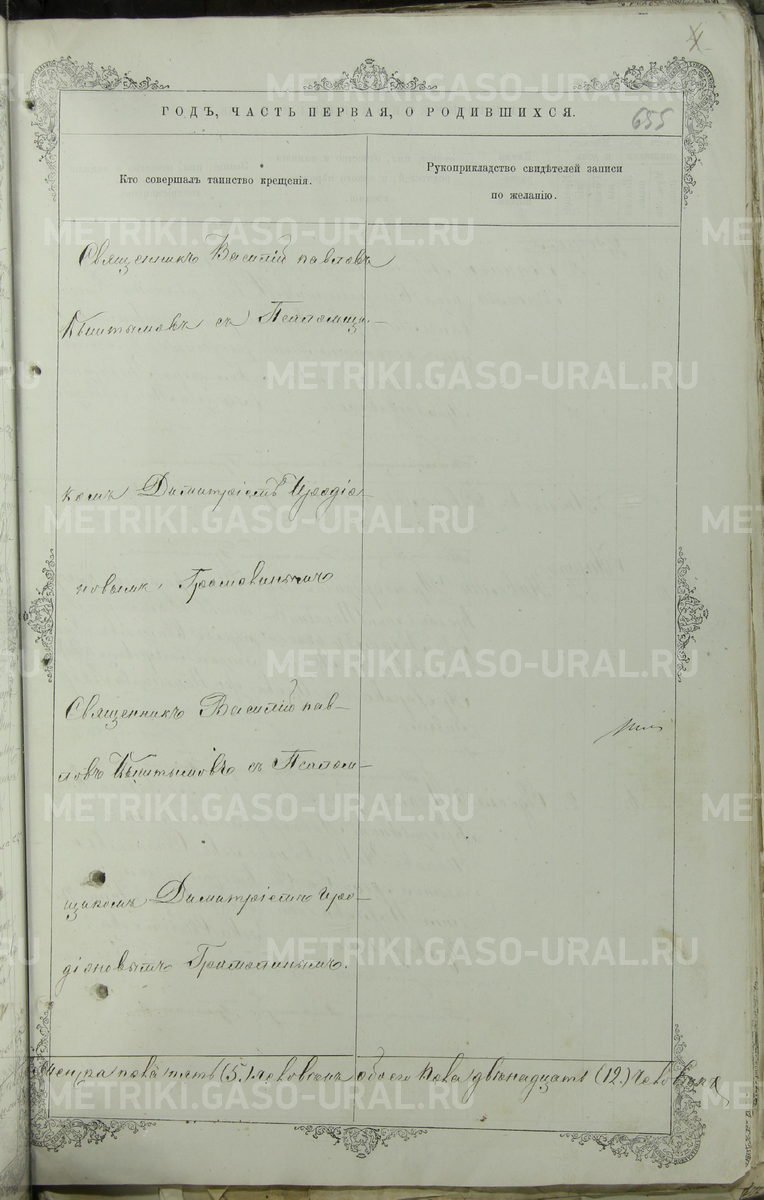 655
ГОДЪ, ЧАСТЬ ПЕРВАЯ, О РОДИВШИХСЯ.
Кто совершалъ таинство крещенія.
Рукоприкладство свидѣтелей записи
по желанію.
Священникъ Василій павловъ
Кыштымовъ съ Псаломщи-
комъ Диматріемъ Иродіо-
новымъ
Священникъ Василій пав-
ловъ Кыштымовъ съ Псалом-
щикомъ Диматріемъ Иро-
діоновымъ
пола пять (5.) человекъ обоего пола двѣнадцать (12.) человекъ
METRIKI.GASO-URAL.RU